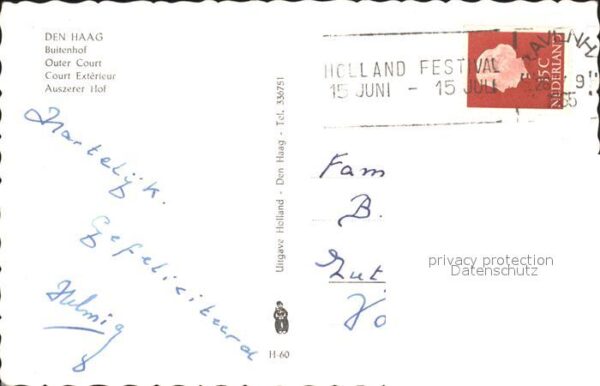 DEN HAAG
Buitenhof
Outer Court
Court Extérieur
Auszerer Hof
Hartelijk
Gefeliciteerd
Helmig
Uitgave Holland - Den Haag - Tel. 336751
H-60
HOLLAND FESTIVAL
15 JUNI - 15 JULI
15 C
NEDERLAND
Fam
B.
Zut
privacy protection
Datenschutz